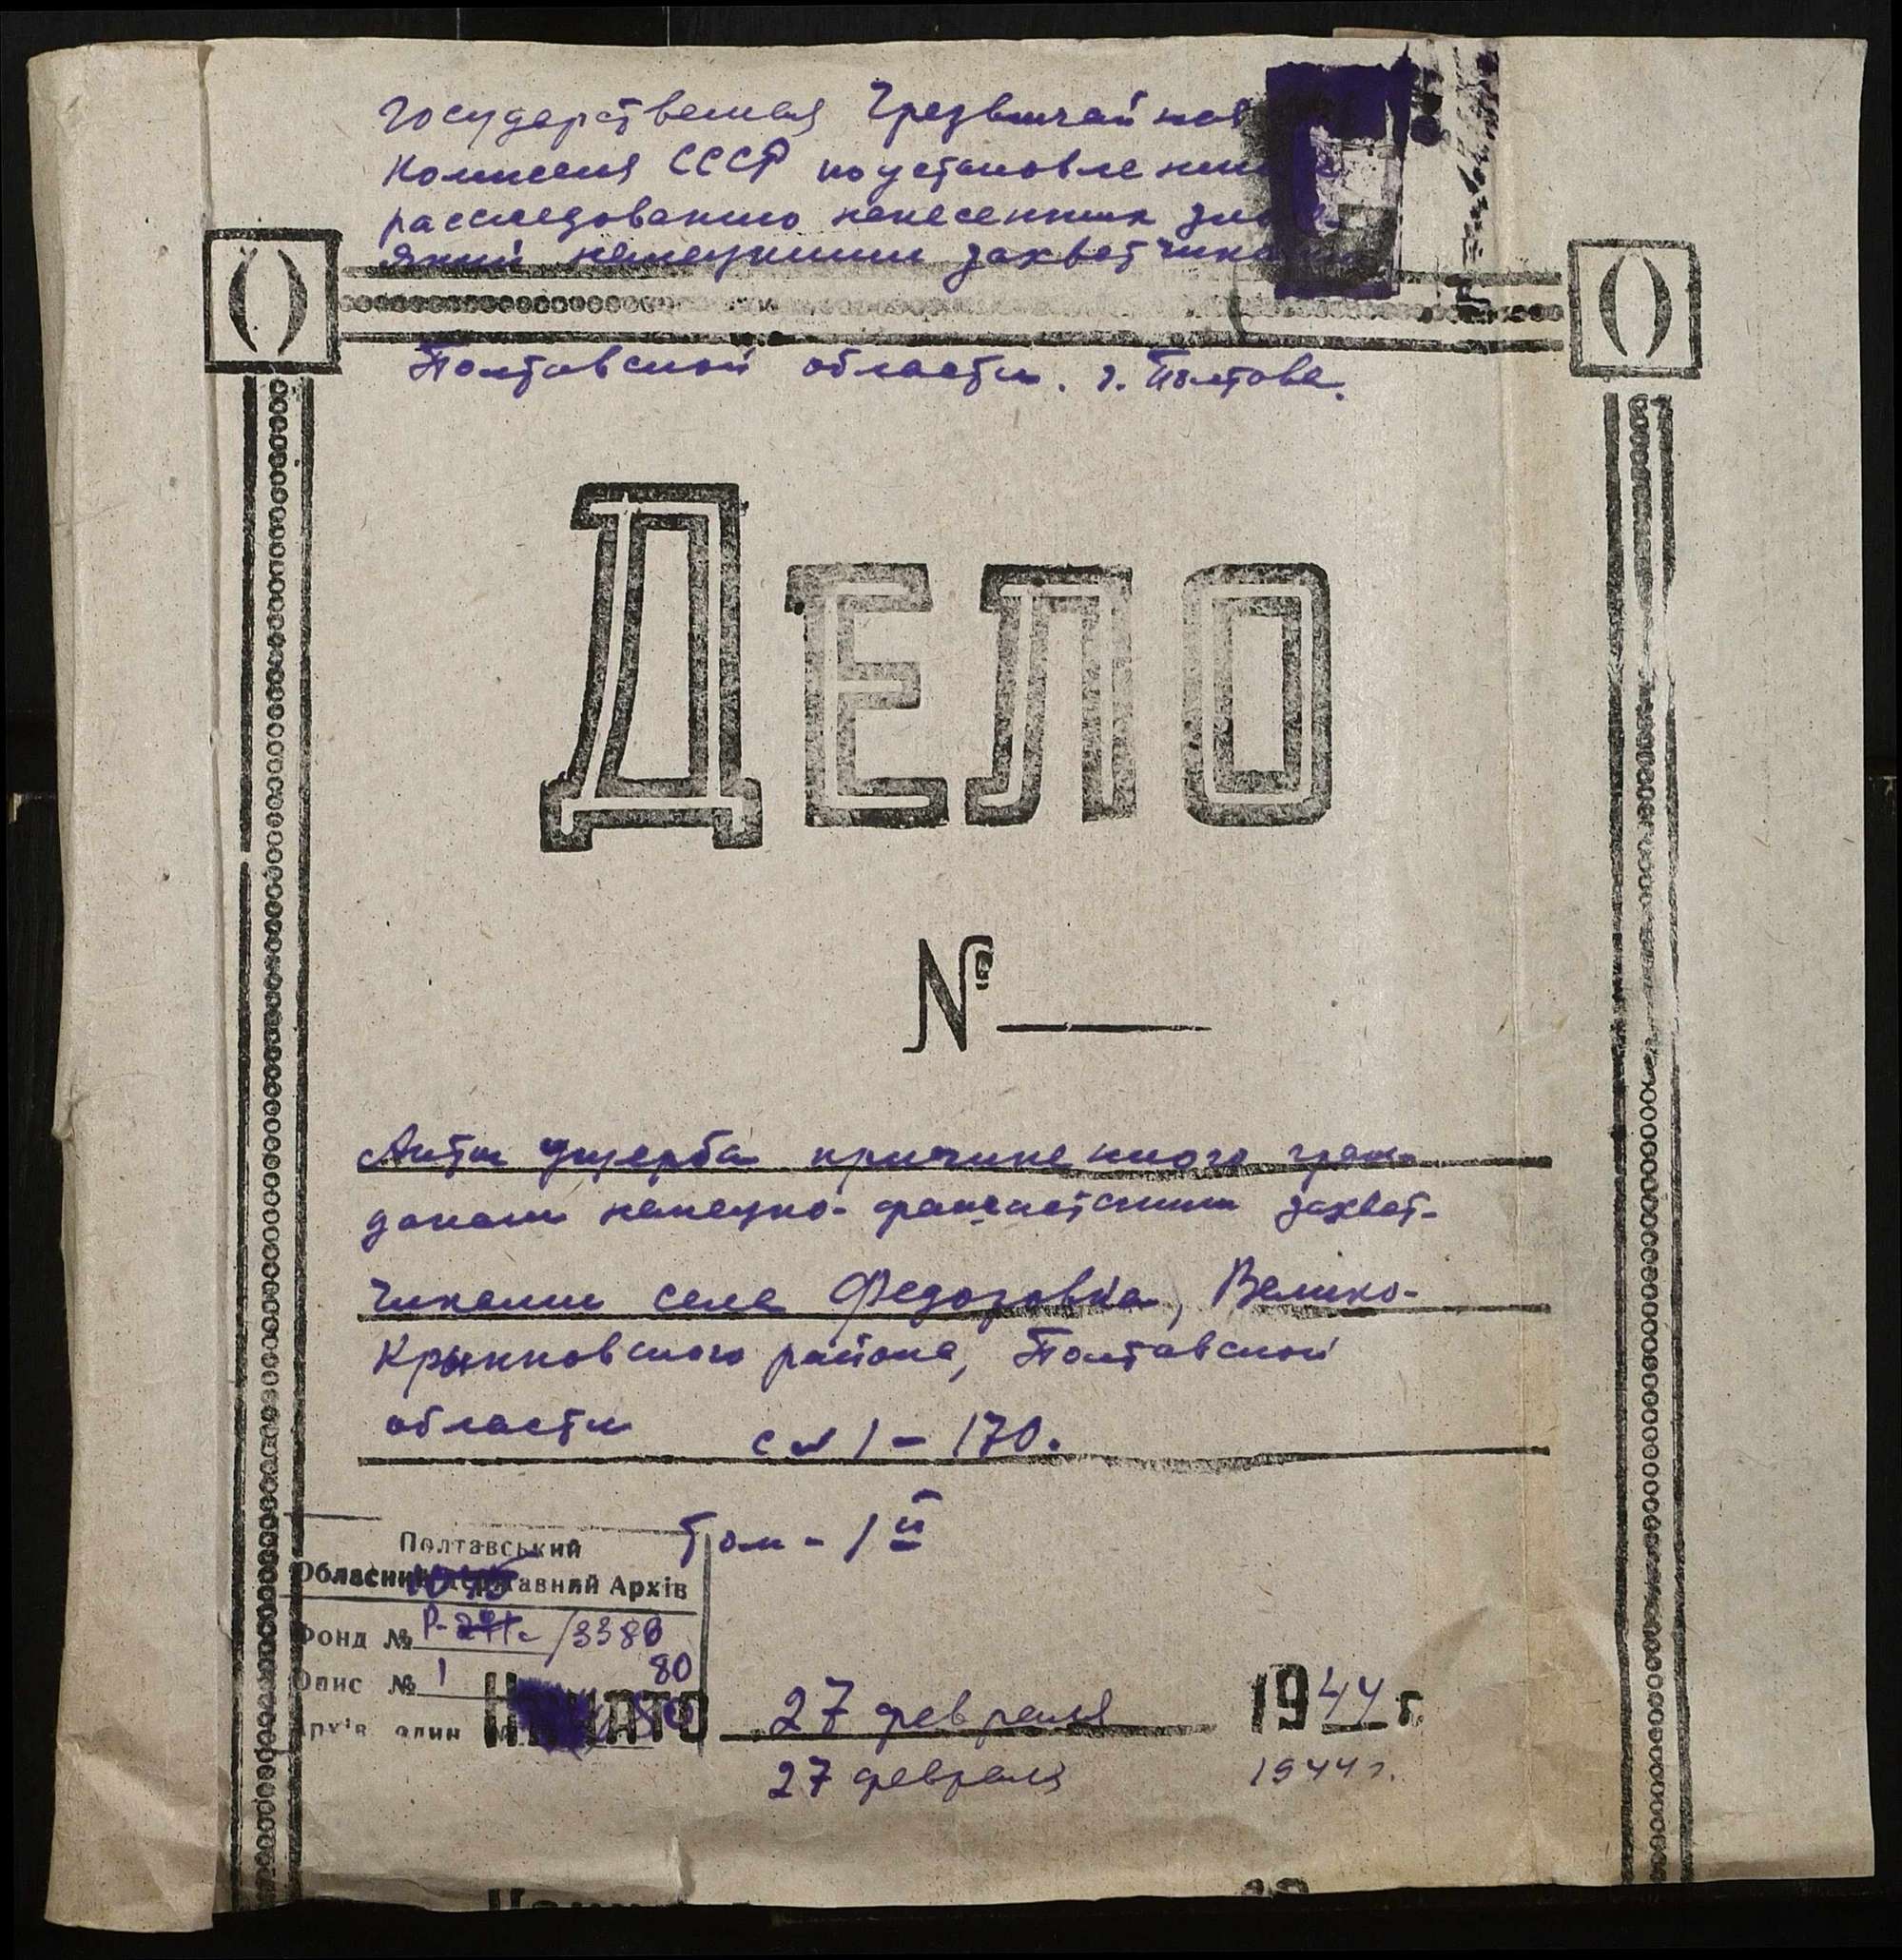 Государственная Чрезвычайная
Комиссия СССР по установлению и
расследованию нанесенных злоде-
яний немецкими захватчиками
Полтавской области. г. Полтава.
ДЕЛО
№
Акты ущерба причиненного граж-
данам немецко-фашистскими захват-
чиками села Федоровка, Велико-
Крынковского района, Полтавской
области с № 1 - 170.
Том - 1й
Полтавський
Обласний Державний Архів
Фонд № Р- /3388
Опис № 1
80
Начато 27 февраля 1944 г.
27 февраля 1944 г.